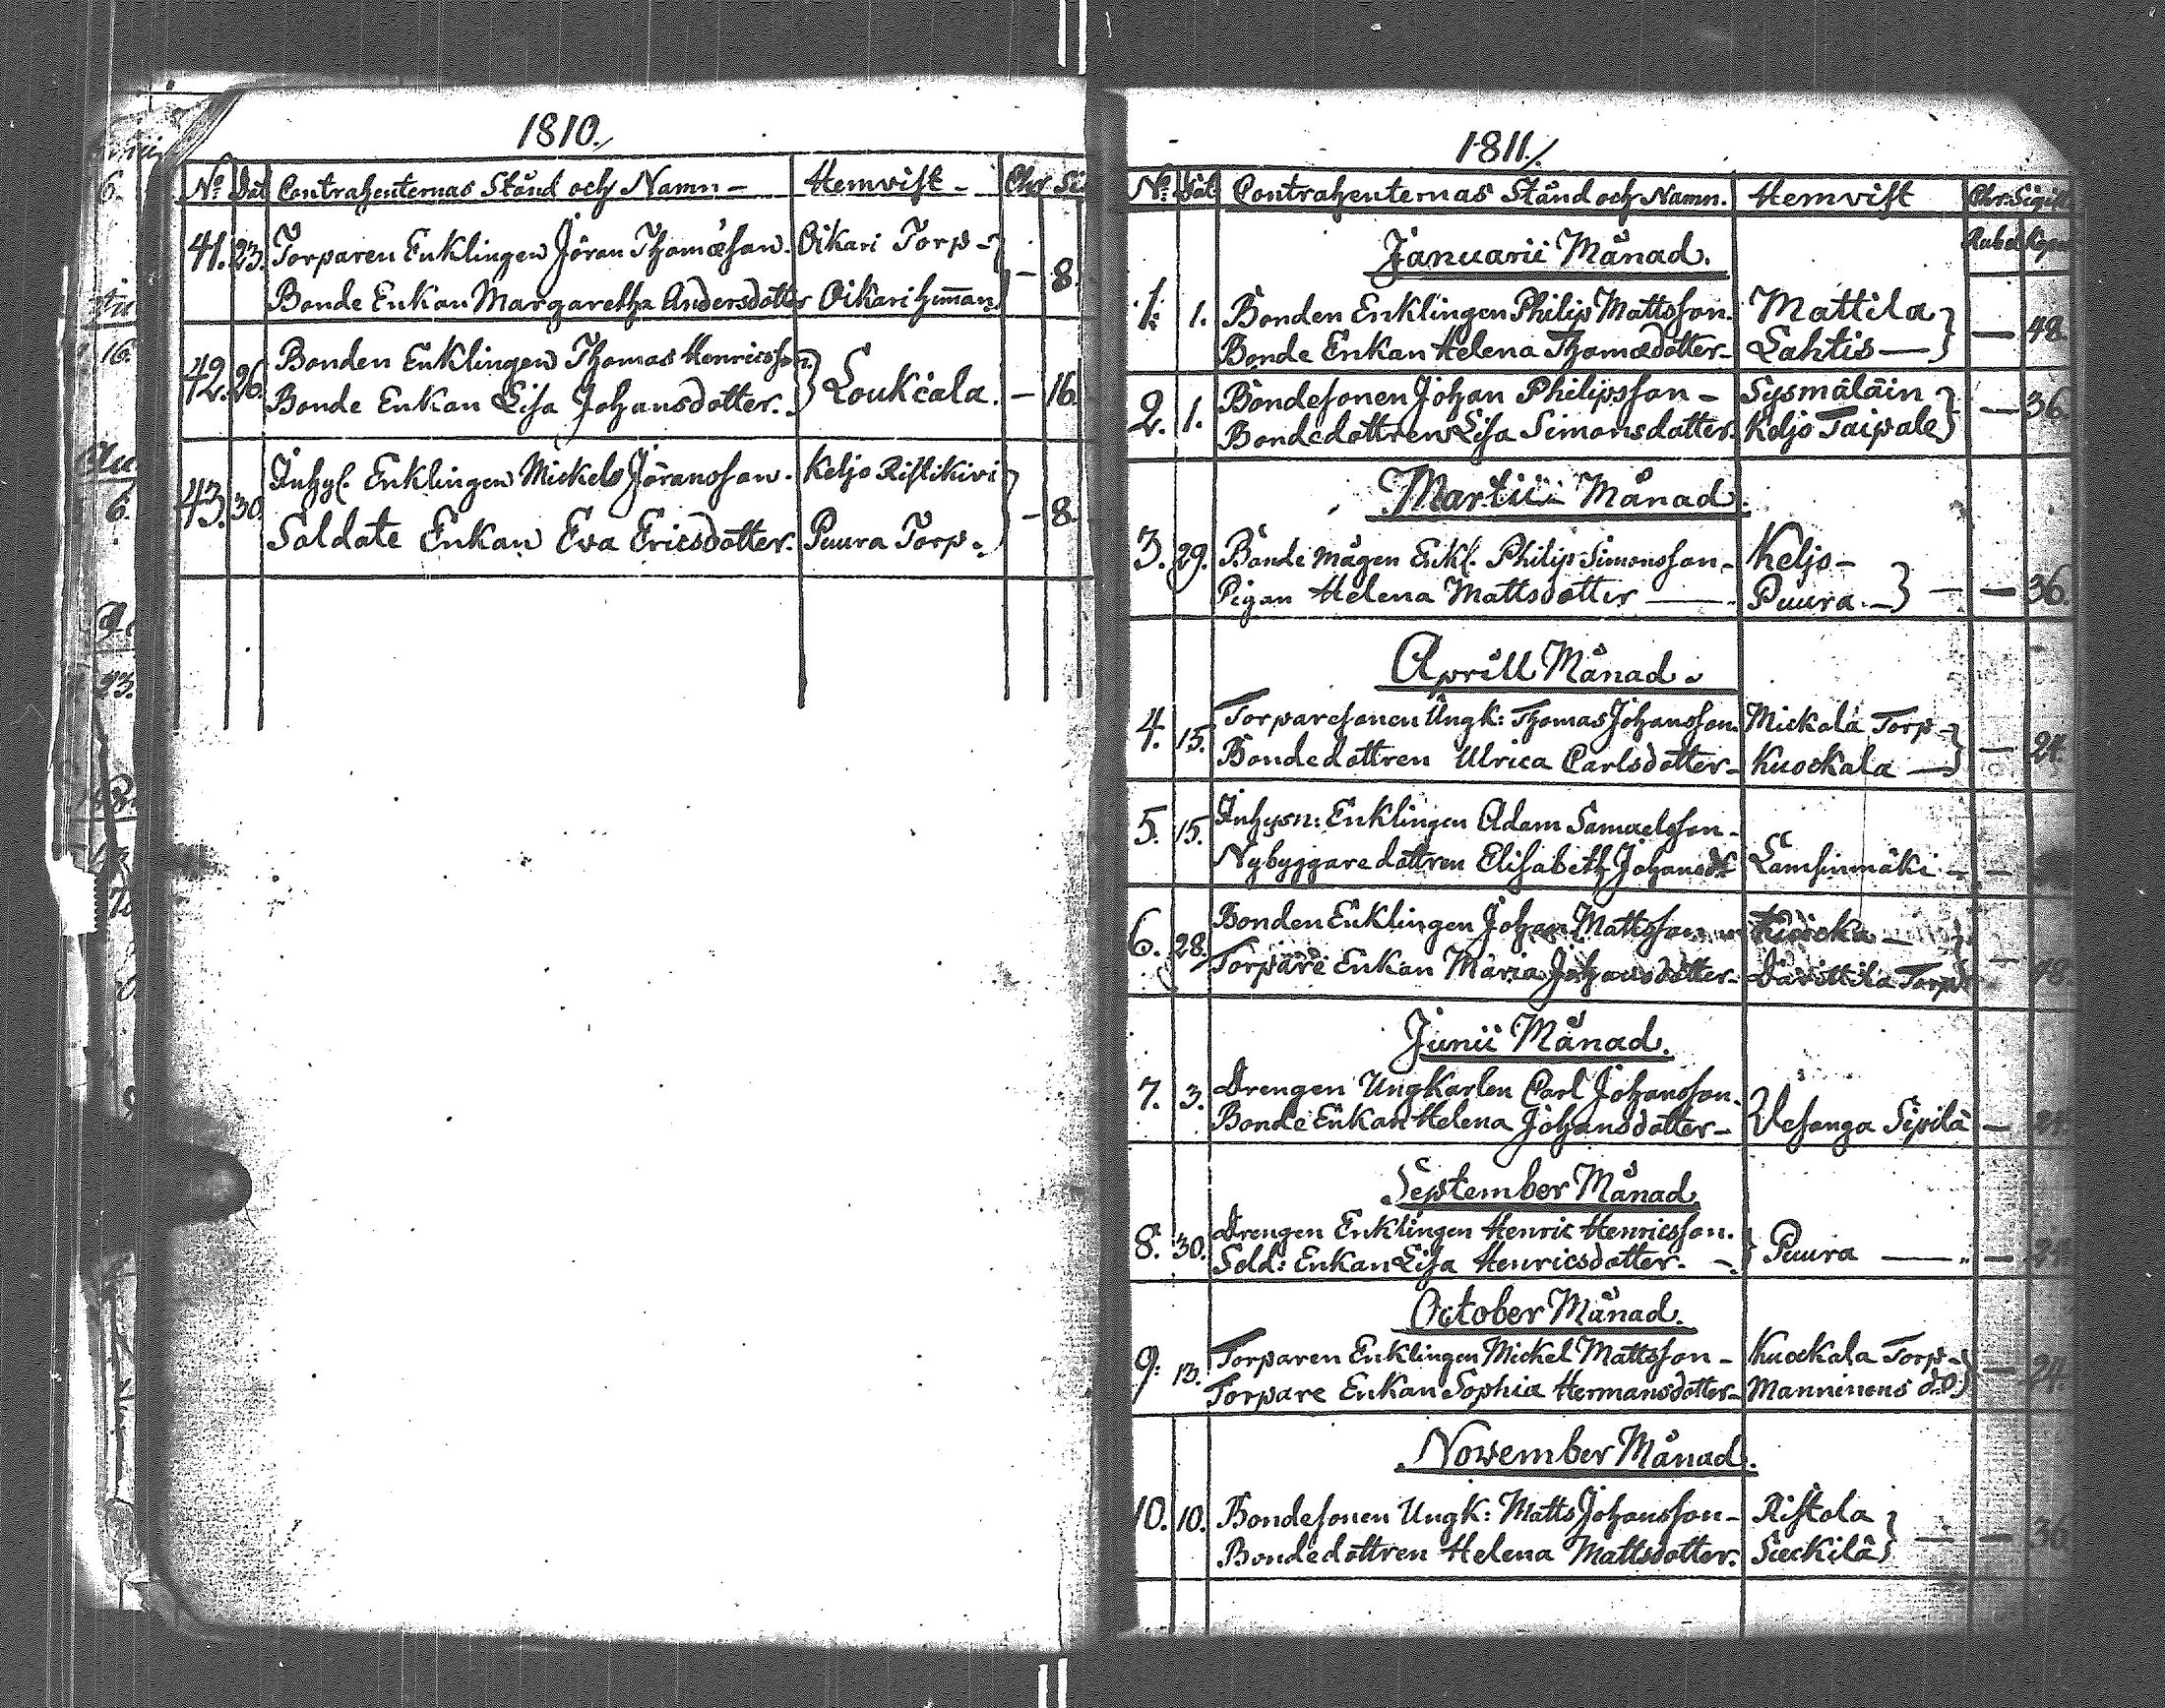 1810.
No Dat Contrahenternas Stånd och Namn - Hemvist - Chr. Si
41. 23. Torparen Enklingen Jöran Thomæson. Oikari Torp -
Bonde Enkan Margaretha Andersdotter Oikari hem̄an. - 8.
42. 26. Bonden Enklingen Thomas Henricsson.
Bonde Enkan Lisa Johansdotter. Loukcala. - 16.
43. 30. Inhys. Enklingen Mickel Jöransson. Keljo Ristikivi
Soldate Enkan Eva Ericsdotter. Puura Torp. - 8.
1811.
No. Dat Contrahenternas Stånd och Namn. Hemvist Chr. Sigill
Rubel Kop
Januarii Månad.
1. 1. Bonden Enklingen Philip Mattsson. Mattila
Bonde Enkan Helena Thomædotter - Lahtis — — 48.
2. 1. Bondesonen Johan Philipsson - Sysmäläin
Bondedottren Lisa Simonsdotter. Keljo Taipale — 36.
Martii Månad.
3. 29. Bonde mågen Enkl. Philip Simonsson - Keljo -
Pigan Helena Mattsdotter — Puura. - — 36.
Aprill Månad.
4. 15. Torparesonen Ungk: Thomas Johansson. Mickola Torp -
Bondedottren Ulrica Carlsdotter - Kuockala — — 24.
5. 15. Inhysn: Enklingen Adam Samuelsson -
Nybyggaredottren Elisabeth Johansd:r Lamsinmäki -
6. 28. Bonden Enklingen Johan Mattsson
Torpare Enkan Maria Johansdotter - Davittila Torp 48
Junii Månad.
7. 3. Drengen Ungkarlen Carl Johansson.
Bonde Enkan Helena Johansdotter - Vesanga Sipilä — 24.
September Månad
8. 30. Drengen Enklingen Henric Henricsson.
Sold: Enkan Lisa Henricsdotter. - Puura — — 24.
October Månad.
9. 13. Torparen Enklingen Mickel Mattsson - Kuockala Torp -
Torpare Enkan Sophia Hermansdotter - Manninens d:o — 24.
November Månad.
10. 10. Bondesonen Ungk: Matts Johansson - Ristola
Bondedottren Helena Mattsdotter. Sæckilä — 36.